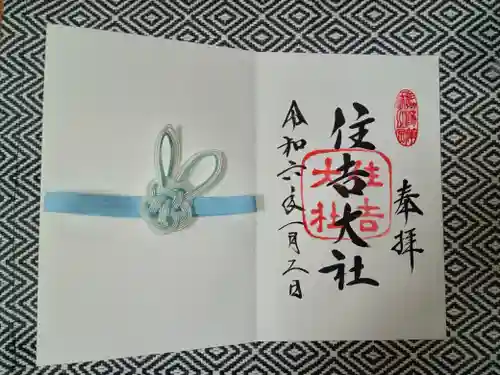 奉拝
住吉大社
住吉
大社
令和六年一月 日